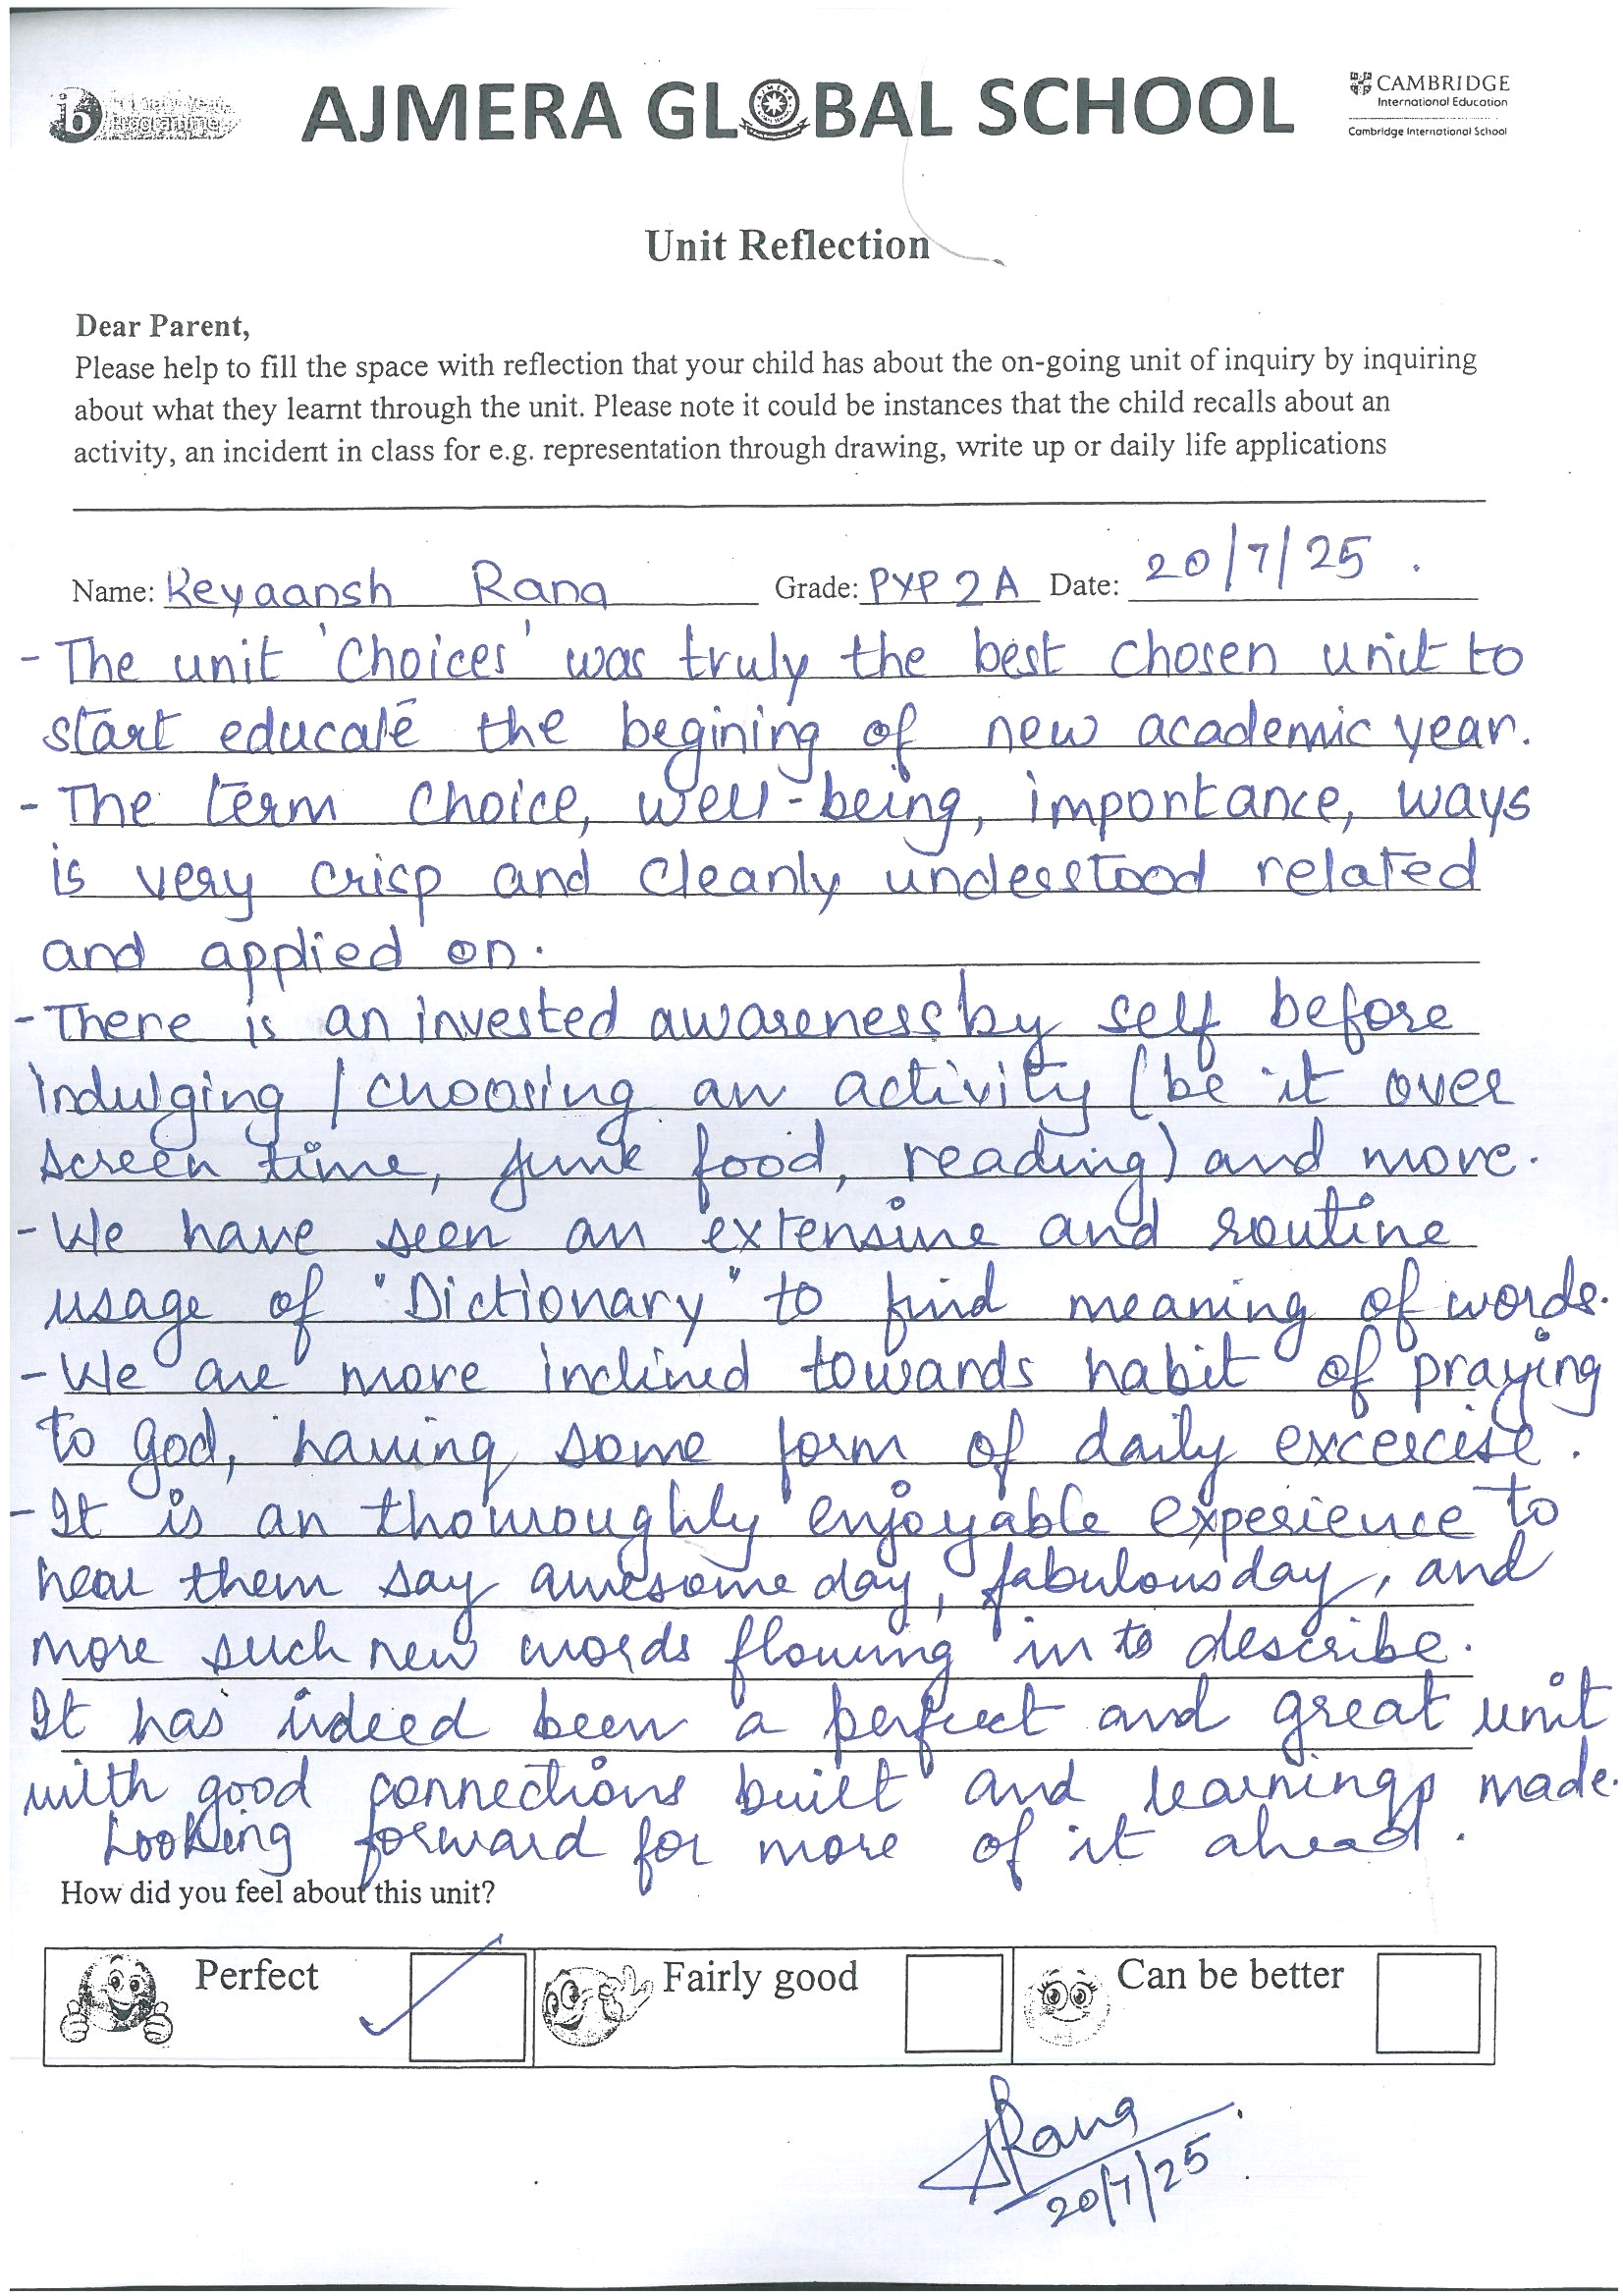 ib Primary Years Programme
AJMERA GLOBAL SCHOOL
CAMBRIDGE
International Education
Cambridge International School
Unit Reflection
Dear Parent,
Please help to fill the space with reflection that your child has about the on-going unit of inquiry by inquiring
about what they learnt through the unit. Please note it could be instances that the child recalls about an
activity, an incident in class for e.g. representation through drawing, write up or daily life applications
Name: Keyaansh Rana Grade: PYP 2 A Date: 20/7/25.
- The unit 'Choices' was truly the best chosen unit to
start educate the begining of new academic year.
- The term choice, well-being, importance, ways
is very crisp and cleanly understood related
and applied on.
- There is an invested awareness by self before
indulging / choosing an activity (be it over
screen time, junk food, reading) and more.
- We have seen an extensive and routine
usage of "Dictionary" to find meaning of words.
- We are more inclined towards habit of praying
to god, having some form of daily excercise.
- It is an thouroughly enjoyable experience to
hear them say awesome day, fabulous day, and
more such new words flowing in to describe.
It has indeed been a perfect and great unit
with good connections built and learnings made.
Looking forward for more of it ahead.
How did you feel about this unit?
Perfect ✓ Fairly good Can be better
Rana
20/7/25.